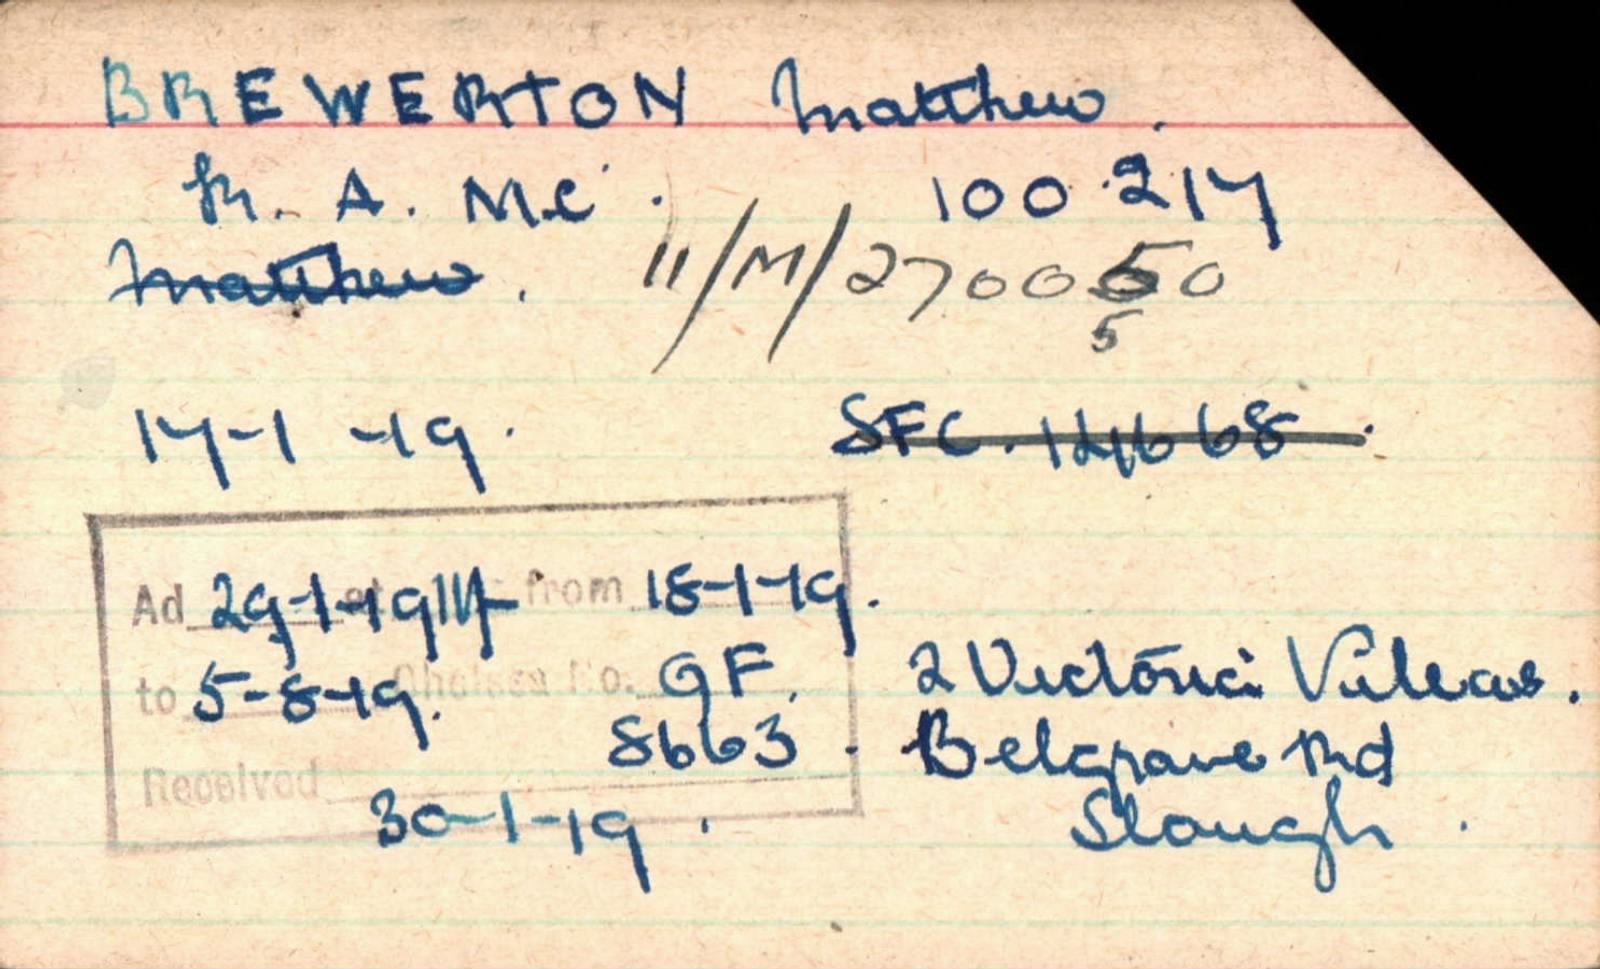 BREWERTON Matthew.
R. A. M.C. 100217
Matthew. 11/M/270050
5
17-1-19. SFC. 14668.
Ad 29-1-19 at from 18-1-19.
to 5-8-19. Chelsea No. GF. 2 Victoria Villas.
8663. Belgrave Rd
Received 30-1-19. Slough.